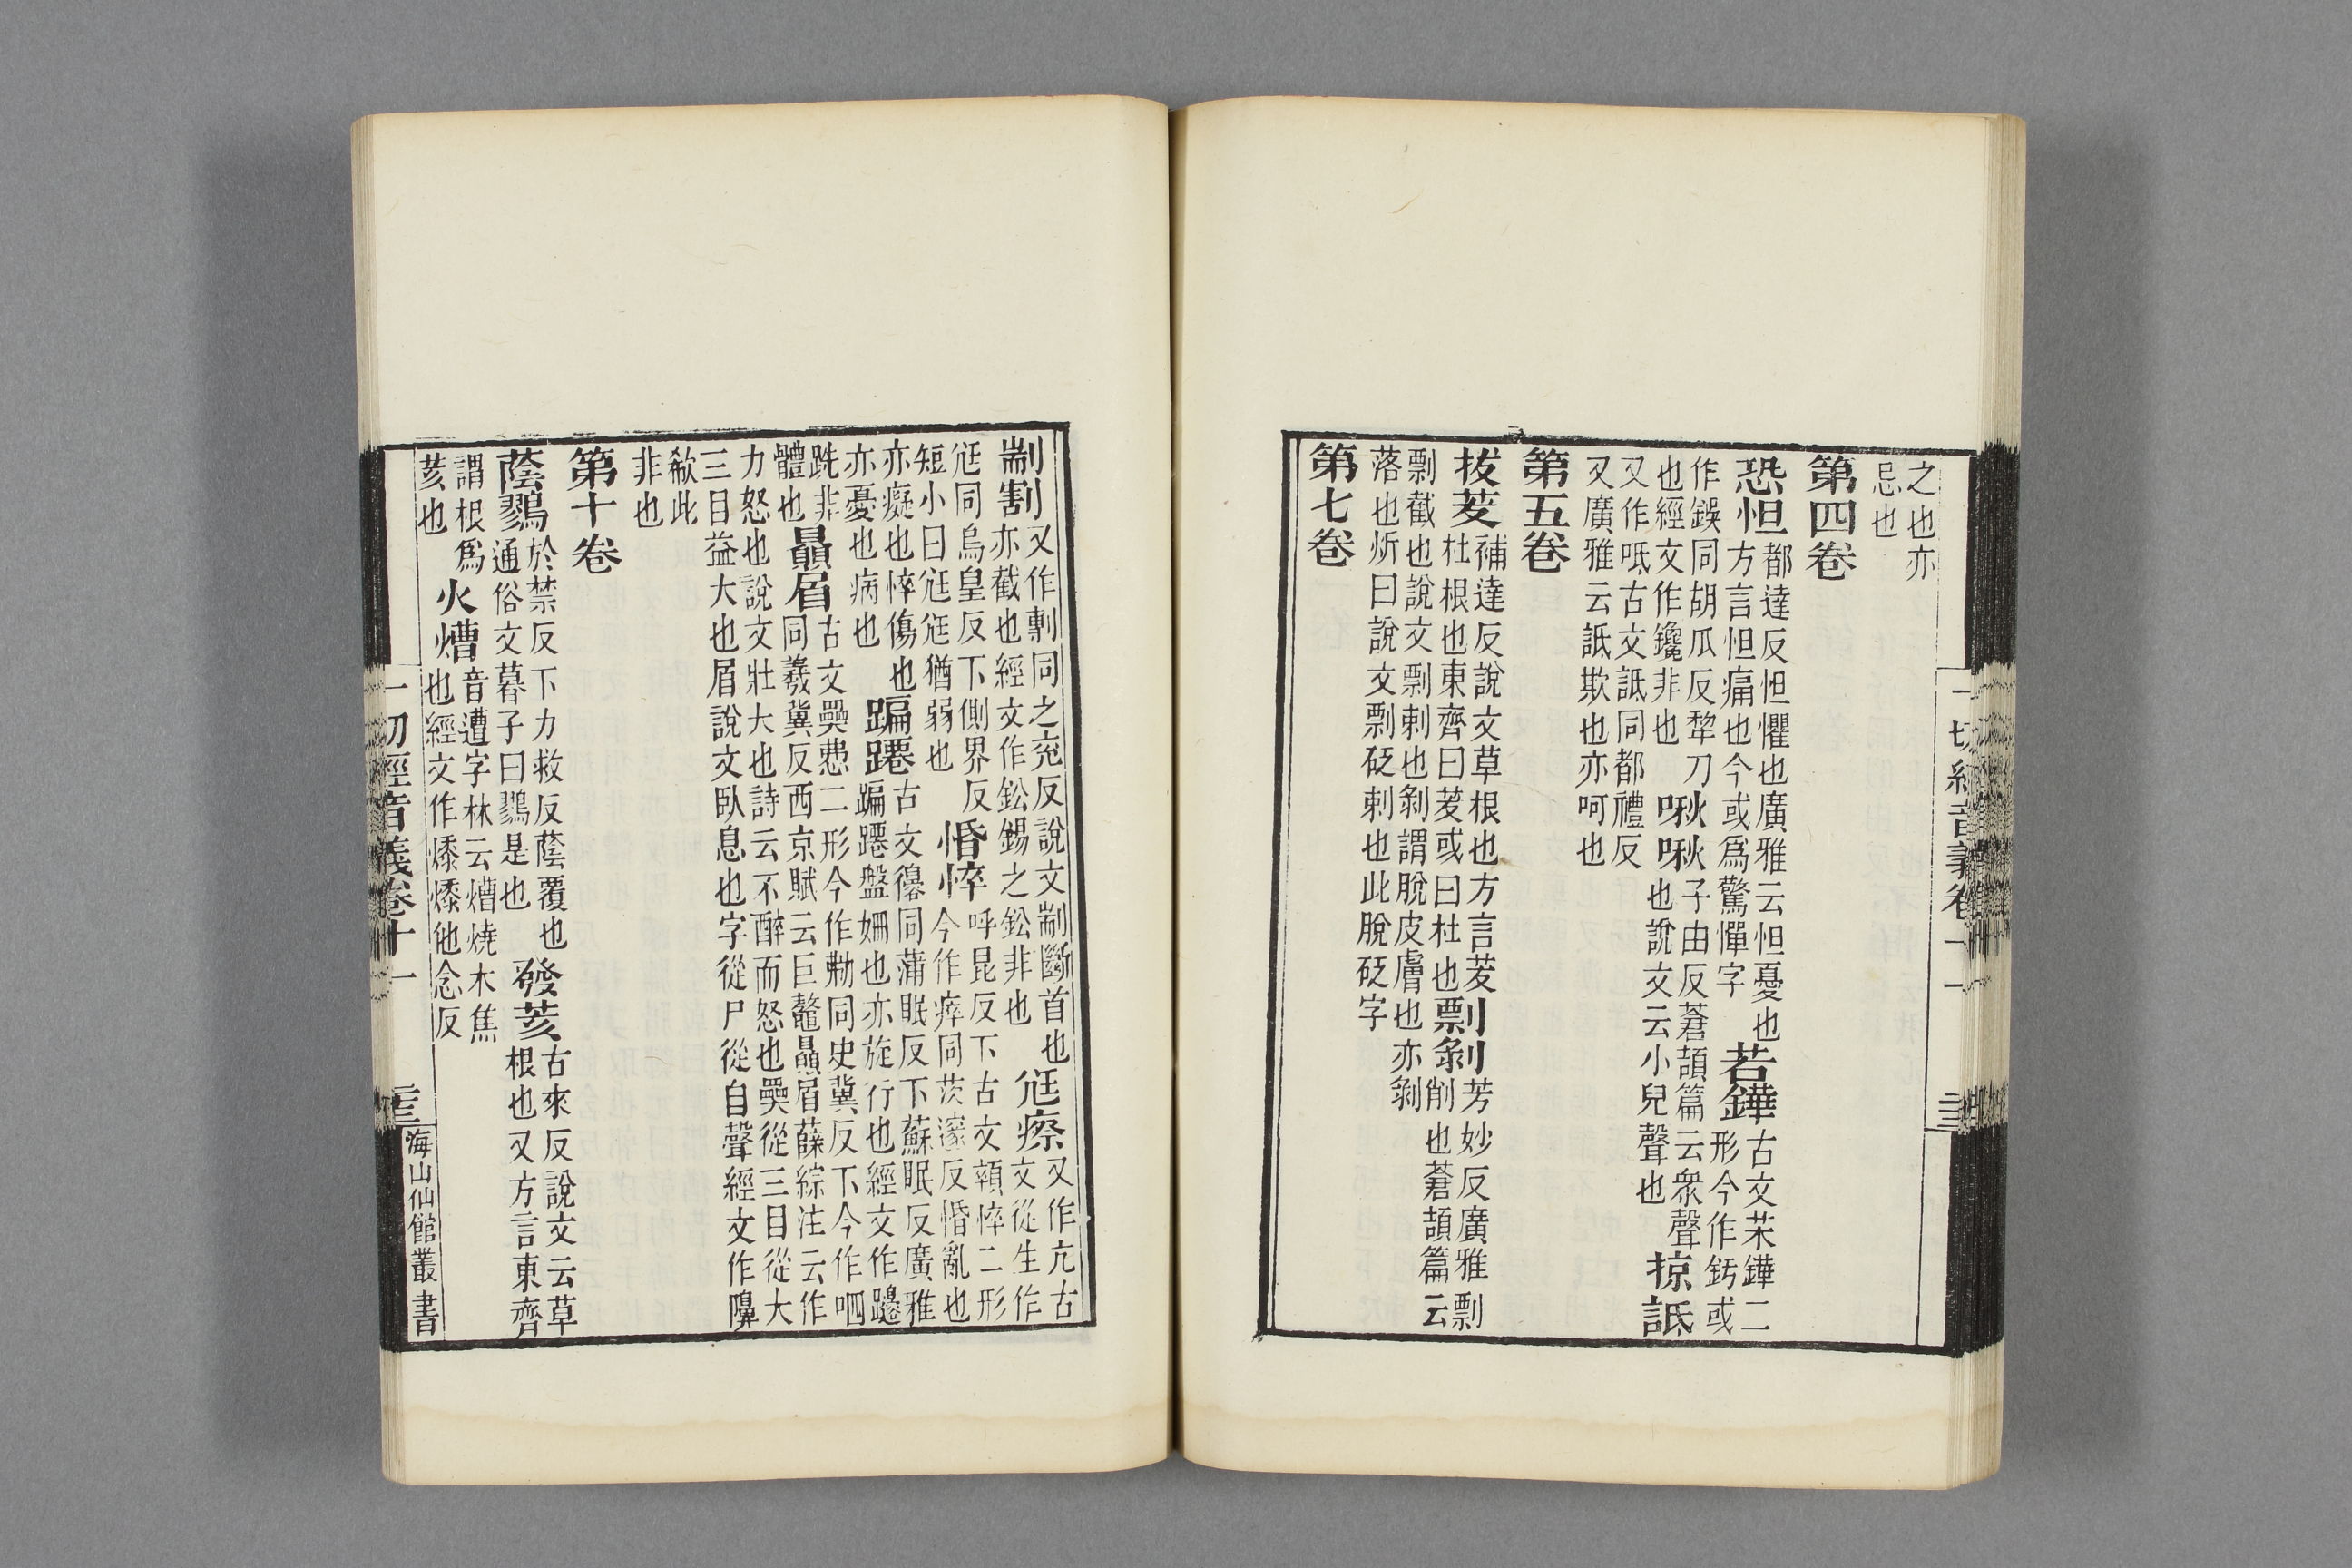 之也亦
忌也
第四卷
恐怛都達反怛懼也廣雅云怛憂也
方言怛痛也今或爲驚憚字
若鏵古文茉鏵二
形今作鈣或
作鋘同胡瓜反犂刀
也經文作鑱非也
啾啾子由反蒼頡篇云衆聲
也說文云小兒聲也
掠詆
又作呧古文詆同都禮反
又廣雅云詆欺也亦呵也
第五卷
拔茇補達反說文草根也方言茇
杜根也東齊曰茇或曰杜也
剽剝芳妙反廣雅剽
削也蒼頡篇云
剽截也說文剽刺也剝謂脫皮膚也亦剝
落也㸞曰說文剽砭刺也此脫砭字
第七卷
一切經音義卷十一
剬割又作剸同之兖反說文剬斷首也
亦截也經文作鈆錫之鈆非也
尪瘵又作亢古
文從生作
尪同烏皇反下側界反
短小曰尪尪猶弱也
惛悴呼昆反下古文顇悴二形
今作瘁同茨遂反惛亂也
亦癡也悴傷也
亦憂也病也
蹁躚古文㣯同蒲眠反下蘇眠反廣雅
蹁躚盤姍也亦旋行也經文作躚
跣非
體也
贔眉古文奰㒑二形今作勴同史冀反下今作呬
同羲冀反西京賦云巨鼇贔眉薛綜注云作
力怒也說文壯大也詩云不醉而怒也奰從三目從大
三目益大也眉說文臥息也字從尸從自聲經文作𨻼
㰲此
非也
第十卷
蔭鷚於禁反下力救反蔭覆也
通俗文暮子曰鷚是也
發荄古來反說文云草
根也又方言東齊
謂根爲
荄也
火㷮音遭字林云㷮燒木焦
也經文作㶫㶫他念反
一切經音義卷十一
二三
海山仙館叢書